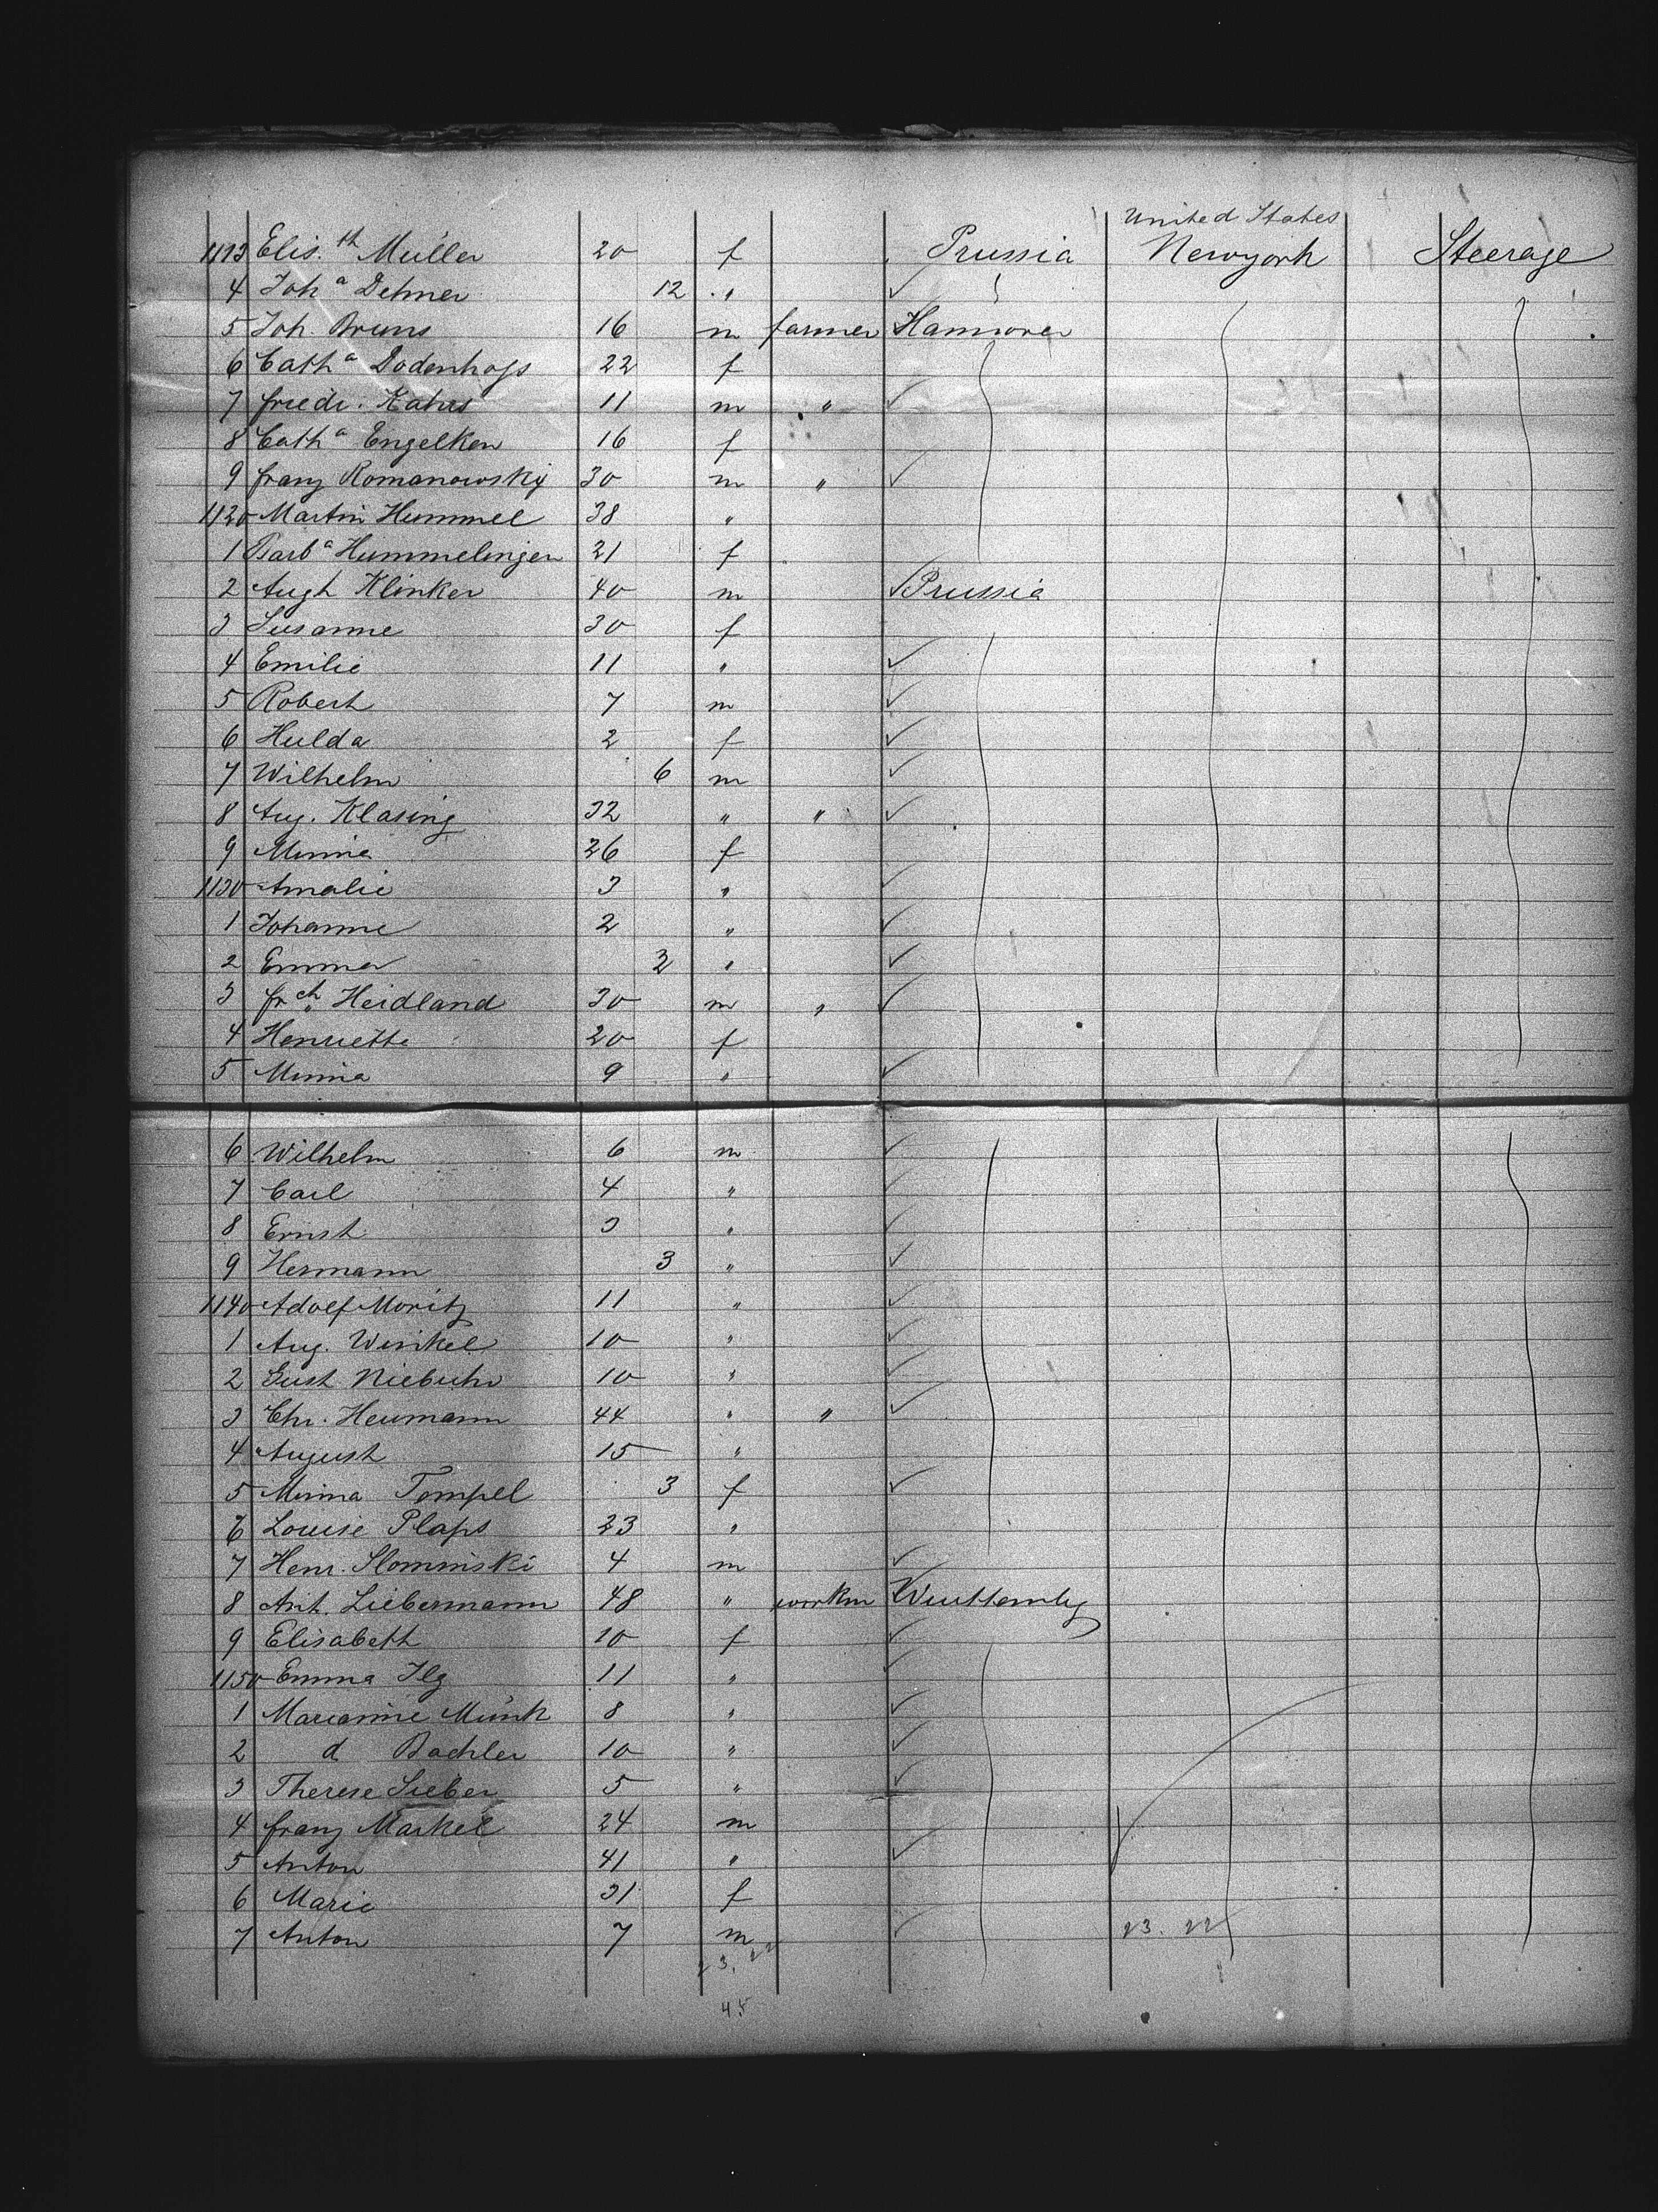 United States
1113 Elis.th Müller 20 f Prussia Newyork Steerage
4 Joha Dehner 12 "
5 Joh. Bruns 16 m farmer Hannover
6 Catha Dodenhoff 22 f
7 Friedr. Kahrs 11 m "
8 Catha Engelken 16 f
9 Franz Romanowsky 30 m "
1120 Martin Hummel 38 "
1 Barba Hummelinger 21 f
2 Augt Klinker 40 m Prussia
3 Susanne 30 f
4 Emilie 11 "
5 Robert 7 m
6 Hulda 2 f
7 Wilhelm 6 m
8 Aug. Klasing 32 " "
9 Minna 26 f
1130 Amalie 3 "
1 Johanne 2 "
2 Emma 3 "
3 Frch Heidland 30 m "
4 Henriette 20 f
5 Minna 9 "
6 Wilhelm 6 m
7 Carl 4 "
8 Ernst 3 "
9 Hermann 3 "
1140 Adolf Moritz 11 "
1 Aug. Winkel 10 "
2 Gust Niebuhr 10 "
3 Chr. Heumann 44 " "
4 August 15 "
5 Minna Tempel 3 f
6 Louise Plaps 23 "
7 Henr. Slominski 4 m
8 Ant. Liebermann 48 " workm Wurttembg
9 Elisabeth 10 f
1150 Emma Ilg 11 "
1 Marianne Münk 8 "
2 d Bachler 10 "
3 Therese Sieber 5 "
4 Franz Markel 24 m
5 Anton 41 "
6 Marie 31 f
7 Anton 7 m 23. 22
23. 22
45